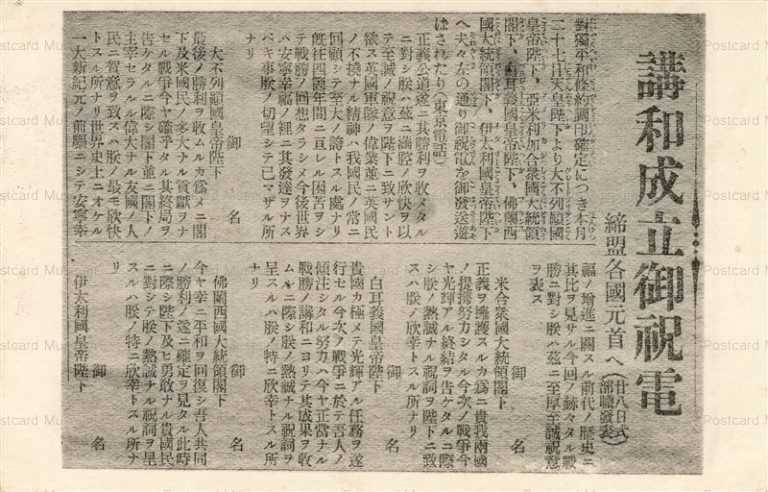 講和成立御祝電
締盟各國元首へ
(廿八日式部職發表)
對獨平和條約調印確定につき本月
二十七日天皇陛下より大不列顚國
皇帝陛下、亞米利加合衆國大統領
閣下、白耳義國皇帝陛下、佛蘭西
國大統領閣下、伊太利國皇帝陛下
へ夫々左の通り御祝電を御發送遊
ばされたり(東京電話)
正義公道遂ニ其勝利ヲ收メタル
ニ對シ朕ハ茲ニ滿腔ノ欣快ヲ以
テ至誠ノ祝意ヲ陛下ニ致サント
欲ス英國軍隊ノ偉業並ニ英國民
ノ不撓ナル精神ハ我國民ノ常ニ
回顧シテ至大ノ誇トスル處ナリ
既往四箇年間ニ亘レル困苦ヲシ
テ戰勝ノ回想タラシメ今後世界
ハ安寧幸福ノ裡ニ其發達ヲナス
ベキ事朕ノ切望シテ已マザル所
ナリ
御名
大不列顚國皇帝陛下
最後ノ勝利ヲ收ムルカ爲メニ閣
下及米國民ノ多大ナル貢獻ヲナ
セル戰爭今ヤ確乎タル其終局ヲ
告ケタルニ際シ閣下並ニ閣下ノ
主宰セラルル偉大ナル友國ノ人
民ニ賀意ヲ致スハ朕ノ最モ欣快
トスル所ナリ世界史上ニオケル
一大新紀元ノ前驅ニシテ安寧幸
福ノ增進ニ關スル前代ノ歷史ニ
其比ヲ見サル今回ノ赫々タル戰
勝ニ對シ朕ハ茲ニ至厚至誠祝意
ヲ表ス
御名
米合衆國大統領閣下
正義ヲ擁護スルカ爲ニ貴我兩國
ノ提携努力シタル今次ノ戰爭今
ヤ光輝アル終結ヲ吿ケタルニ際
シ朕ノ熱誠ナル祝詞ヲ陛下ニ致
スハ朕ノ欣幸トスル所ナリ
御名
白耳義國皇帝陛下
貴國カ極メテ光輝アル任務ヲ遂
行セル今次ノ戰爭ニ於テ吾人ノ
傾注シタル努力ハ今ヤ正當ナル
戰勝ノ講和ニヨリテ其成果ヲ收
ムルニ際シ朕ノ熱誠ナル祝詞ヲ
呈スルハ朕ノ特ニ欣幸トスル所
ナリ
御名
佛蘭西國大統領閣下
今ヤ幸ニ平和ヲ回復シ吾人共同
ノ勝利ノ遂ニ確定ヲ見タル此時
ニ際シ陛下及ヒ勇敢ナル貴國民
ニ對シテ朕ノ熱誠ナル祝詞ヲ呈
スルハ朕ノ特ニ欣幸トスル所ナ
リ
御名
伊太利國皇帝陛下